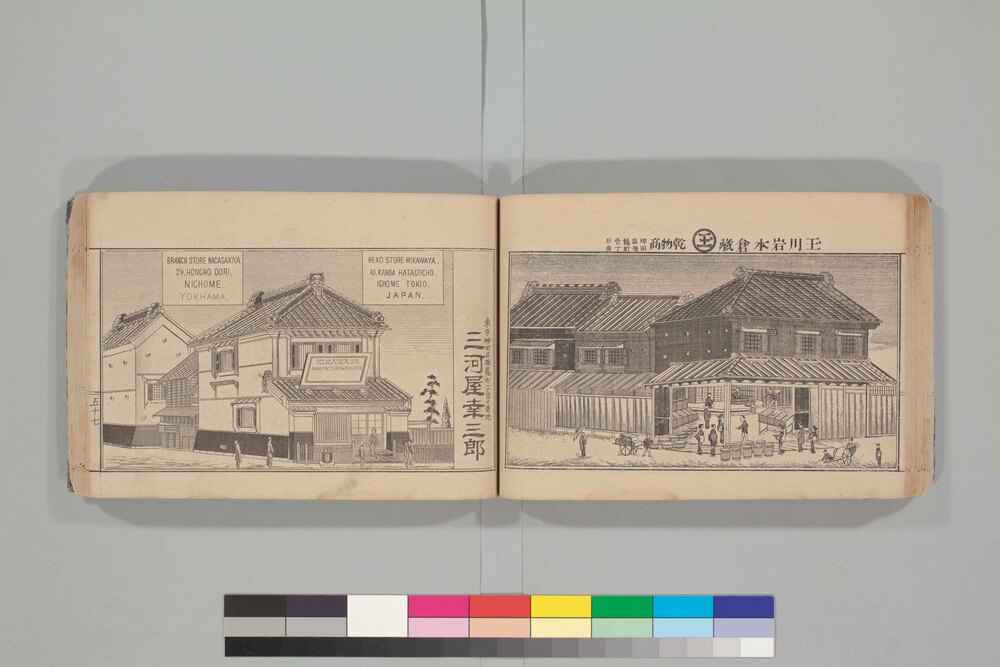 玉川岩本倉藏
乾物商
HEAD STORE MIKAWAYA.
10. KANDA HATAGOCHO.
ICHOME TOKIO.
JAPAN.
BRANCH STORE NAGASAKIYA.
24, HONCHO DORI.
NICHOME.
YOKHAMA.
三河屋幸三郎
五十七